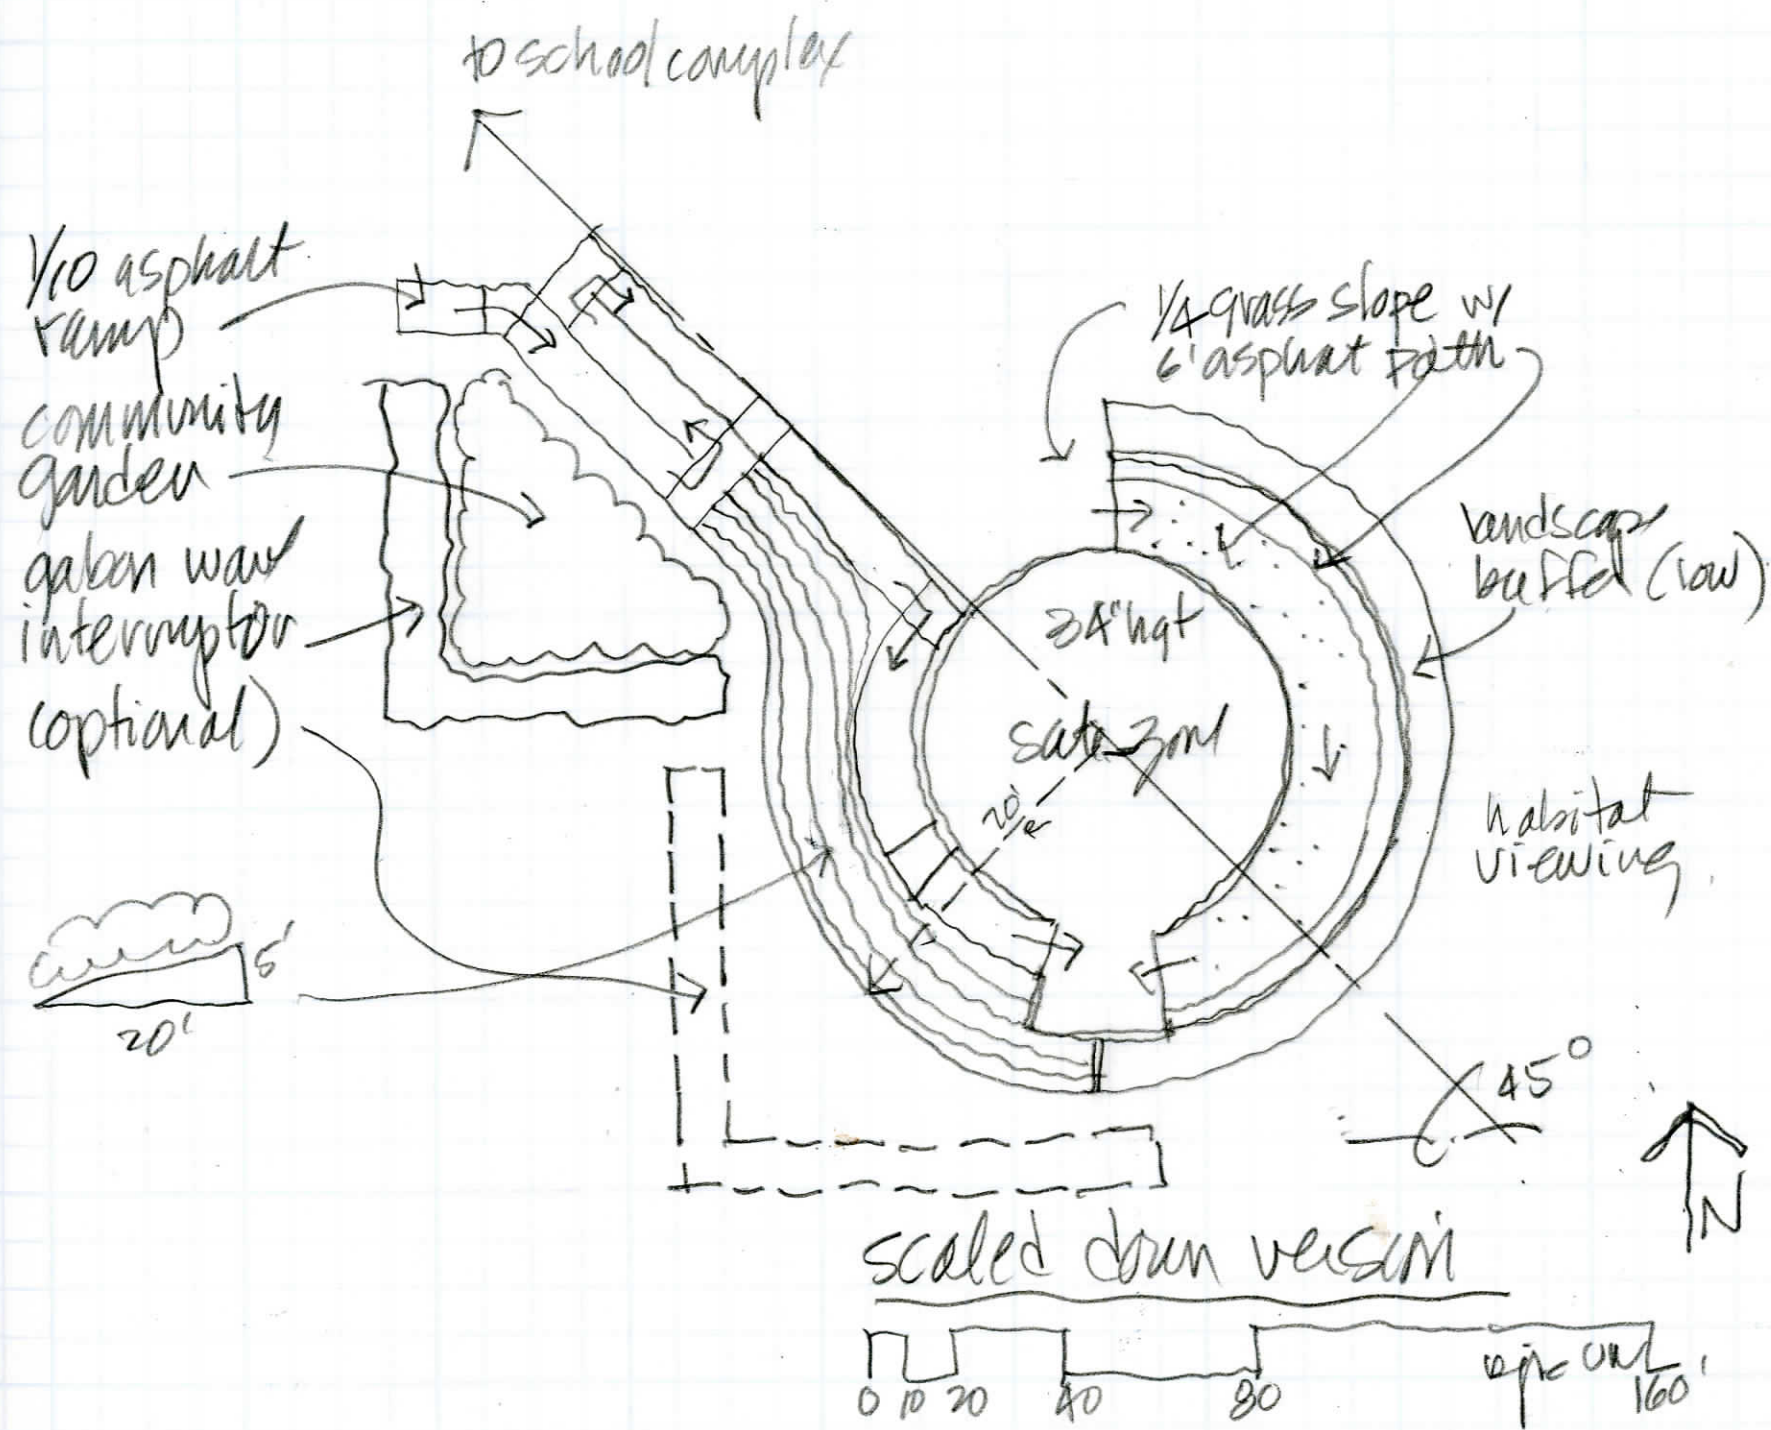 to school complex
1/10 asphalt
ramp
community
garden
gabon wave
interruptor
(optional)
5'
20'
1/4 grass slope w/
6' asphat path
landscape
buffer (low)
34" hgt
safe zone
20'
habitat
viewing
45°
N
scaled down version
0 10 20 40 80 160'